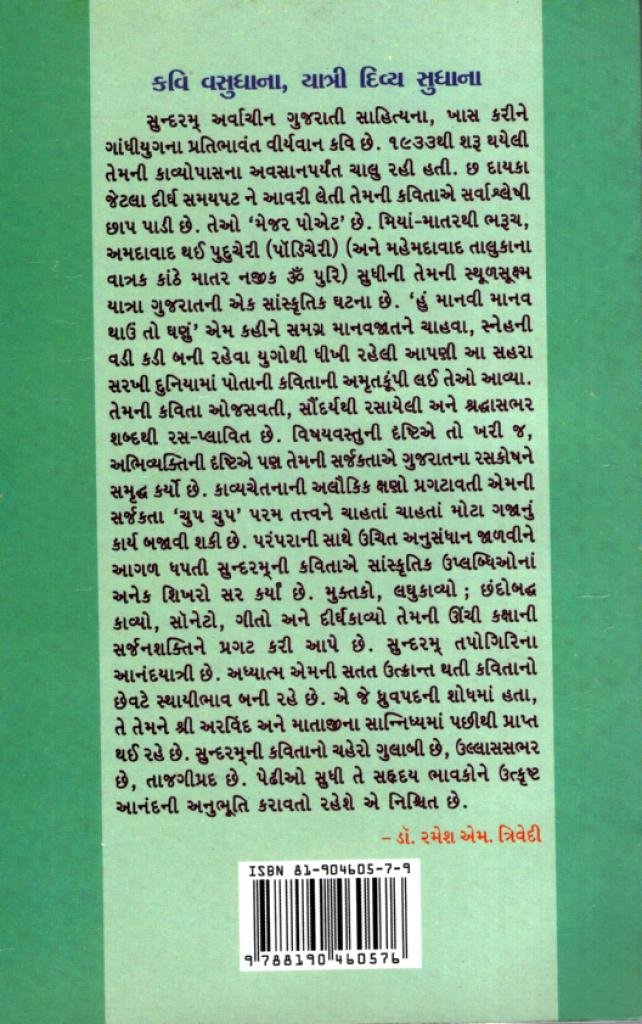 કવિ વસુધાના, યાત્રી દિવ્ય સુધાના
સુન્દરમ્ અર્વાચીન ગુજરાતી સાહિત્યના, ખાસ કરીને
ગાંધીયુગના પ્રતિભાવંત વીર્યવાન કવિ છે. ૧૯૩૩થી શરૂ થયેલી
તેમની કાવ્યોપાસના અવસાનપર્યંત ચાલુ રહી હતી. છ દાયકા
જેટલા દીર્ઘ સમયપટ ને આવરી લેતી તેમની કવિતાએ સર્વાશ્લેષી
છાપ પાડી છે. તેઓ ‘મેજર પોએટ’ છે. મિયાં-માતરથી ભરૂચ,
અમદાવાદ થઈ પુદુચેરી (પૉંડિચેરી) (અને મહેમદાવાદ તાલુકાના
વાત્રક કાંઠે માતર નજીક ૐ પુરિ) સુધીની તેમની સ્થૂળસૂક્ષ્મ
યાત્રા ગુજરાતની એક સાંસ્કૃતિક ઘટના છે. ‘હું માનવી માનવ
થાઉં તો ઘણું’ એમ કહીને સમગ્ર માનવજાતને ચાહવા, સ્નેહની
વડી કડી બની રહેવા યુગોથી ધીખી રહેલી આપણી આ સહરા
સરખી દુનિયામાં પોતાની કવિતાની અમૃતકૂંપી લઈ તેઓ આવ્યા.
તેમની કવિતા ઓજસવતી, સૌંદર્યથી રસાયેલી અને શ્રદ્ધાસભર
શબ્દથી રસ-પ્લાવિત છે. વિષયવસ્તુની દૃષ્ટિએ તો ખરી જ,
અભિવ્યક્તિની દૃષ્ટિએ પણ તેમની સર્જકતાએ ગુજરાતના રસકોષને
સમૃદ્ધ કર્યો છે. કાવ્યચેતનાની અલૌકિક ક્ષણો પ્રગટાવતી એમની
સર્જકતા ‘ચુપ ચુપ’ પરમ તત્ત્વને ચાહતાં ચાહતાં મોટા ગજાનું
કાર્ય બજાવી શકી છે. પરંપરાની સાથે ઉચિત અનુસંધાન જાળવીને
આગળ ધપતી સુન્દરમ્‌ની કવિતાએ સાંસ્કૃતિક ઉપલબ્ધિઓનાં
અનેક શિખરો સર કર્યાં છે. મુક્તકો, લઘુકાવ્યો ; છંદોબદ્ધ
કાવ્યો, સૉનેટો, ગીતો અને દીર્ઘકાવ્યો તેમની ઊંચી કક્ષાની
સર્જનશક્તિને પ્રગટ કરી આપે છે. સુન્દરમ્ તપોગિરિના
આનંદયાત્રી છે. અધ્યાત્મ એમની સતત ઉત્ક્રાન્ત થતી કવિતાનો
છેવટે સ્થાયીભાવ બની રહે છે. એ જે ધ્રુવપદની શોધમાં હતા,
તે તેમને શ્રી અરવિંદ અને માતાજીના સાન્નિધ્યમાં પછીથી પ્રાપ્ત
થઈ રહે છે. સુન્દરમ્‌ની કવિતાનો ચહેરો ગુલાબી છે, ઉલ્લાસસભર
છે, તાજગીપ્રદ છે. પેઢીઓ સુધી તે સહૃદય ભાવકોને ઉત્કૃષ્ટ
આનંદની અનુભૂતિ કરાવતો રહેશે એ નિશ્ચિત છે.
– ડૉ. રમેશ એમ. ત્રિવેદી
ISBN 81-904605-7-9
9 788190 460576